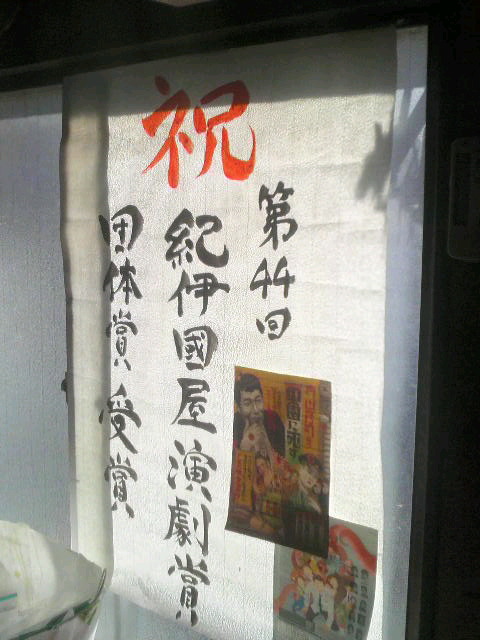 祝
第44回
紀伊國屋演劇賞
団体賞受賞